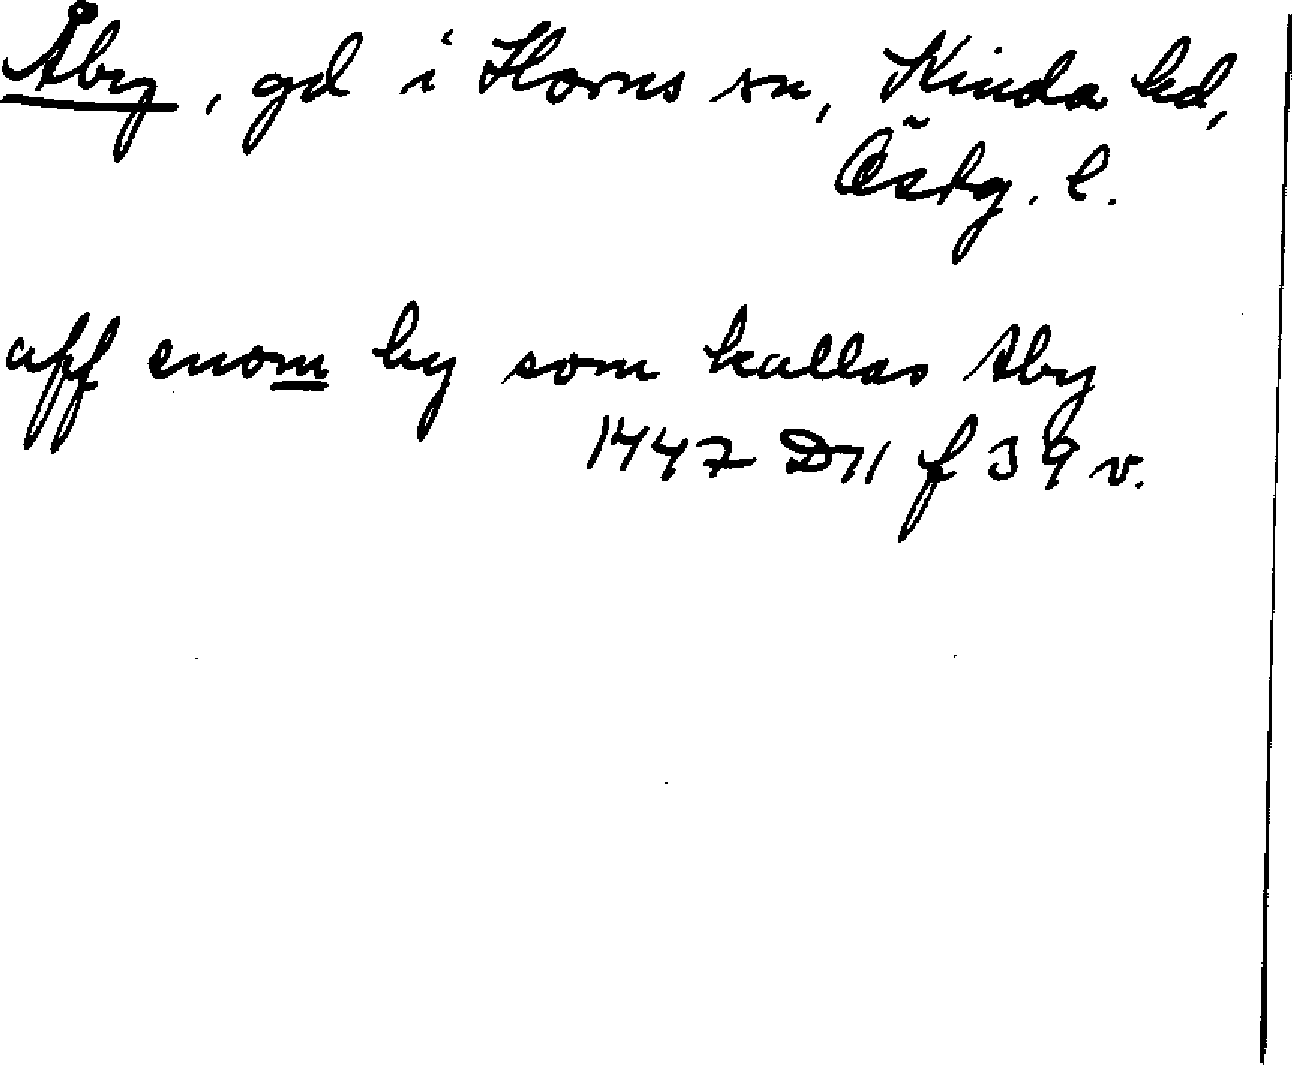 Åby, gd i Horns sn, Kinda hd,
Östg. l.
aff enom by som kallas Aby
1447 D11 f 39 v.